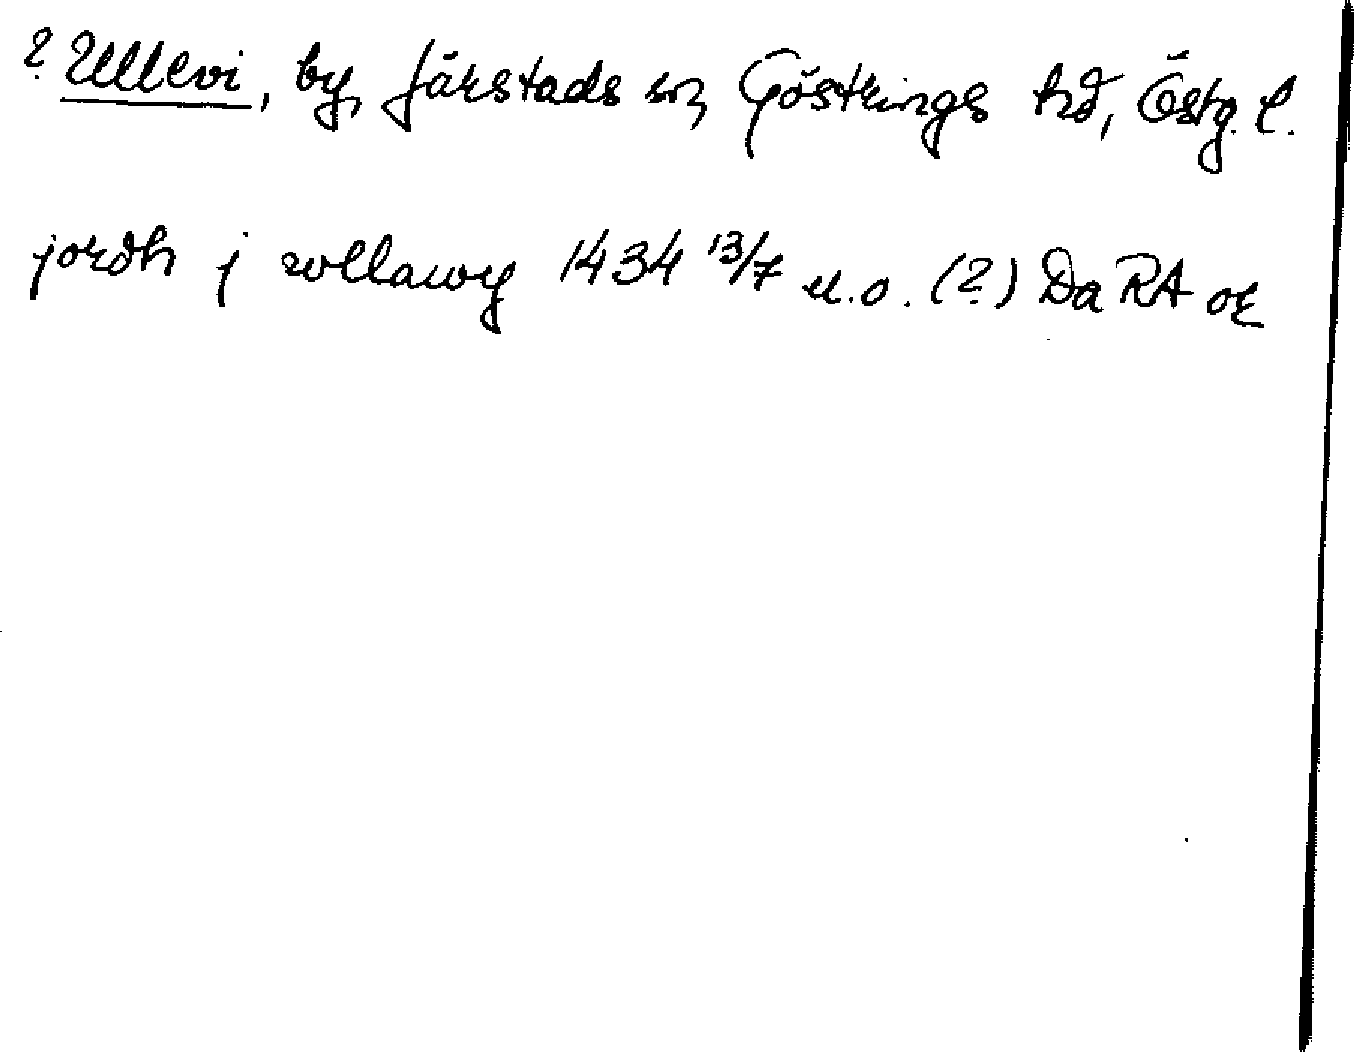 ? Ullevi, by, Järstads sn, Göstrings hd, Östg. l.
jordh j wllawy 1434 13/7 u.o. (?) Da RA or